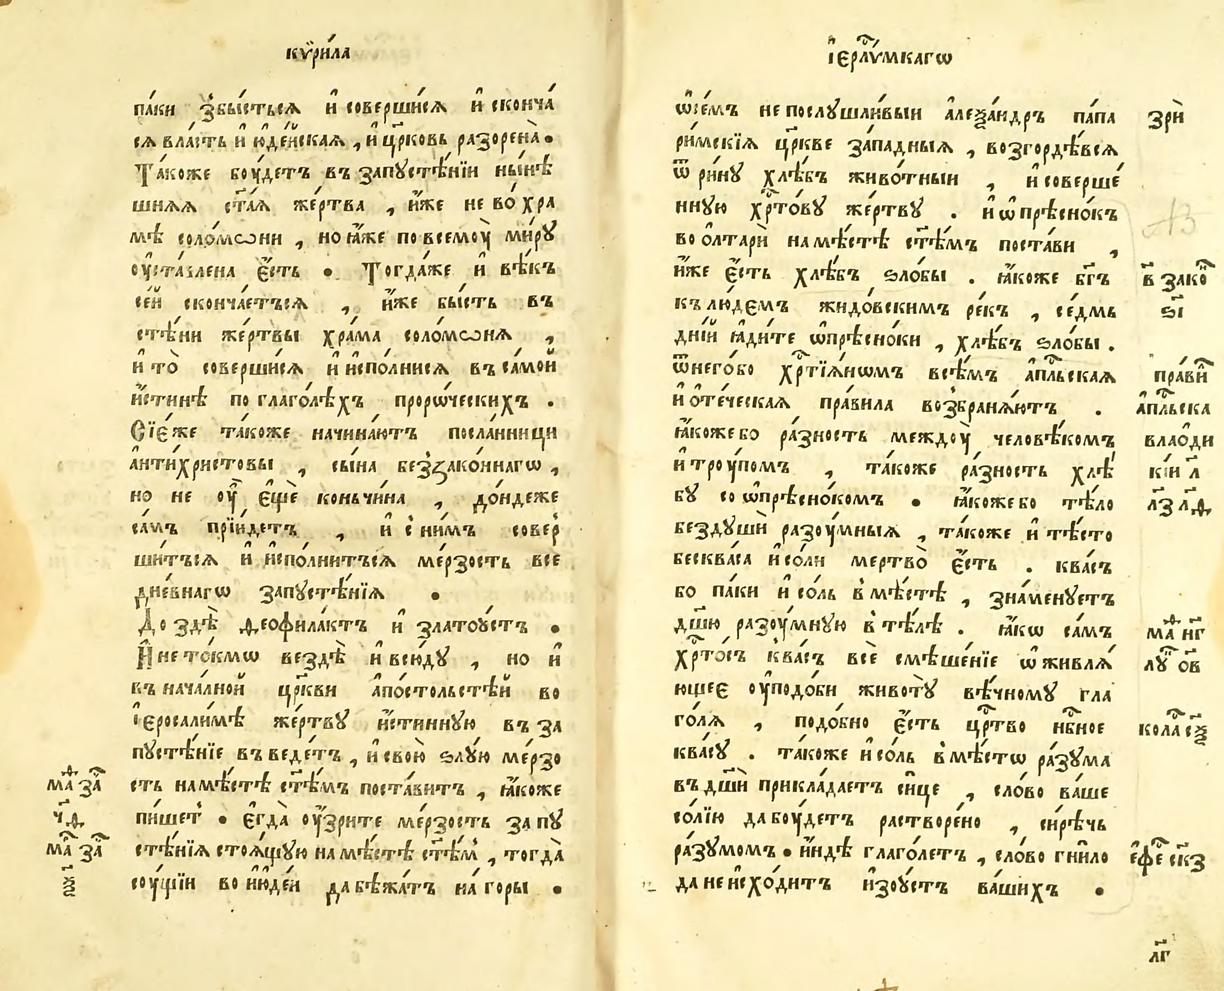 кѷри́ла
па́ки збы́сться и҆ соверши́ся и҆ сконча́
ся вла́сть и҆ ю҆де́йская , и҆ цр҃ковь разоре́на .
Та́коже бꙋ́детъ въ запꙋстѣ́нїи ны́нѣ
шняя ст҃ая же́ртва , и҆́же не во хра
мѣ соломѡ́ни , но ꙗ҆́же по всемꙋ̀ ми́рꙋ
ᲂу҆ста́влена є҆́сть . Тогда́же и҆ вѣ́къ
се́й сконча́етъся , и҆́же бы́сть въ
стѣ́ни же́ртвы хра́ма соломѡ́ня ,
и҆ то̀ соверши́ся и҆ и҆спо́лнися въ са́мой
и҆́стинѣ по глаго́лѣхъ проро́ческихъ .
Сїе́же та́коже начина́ютъ посла́нницы
а҆нти́христовы , сы́на безъзако́ннагѡ ,
но не ᲂу҆̀ є҆щѐ коньчи́на , до́ндеже
са́мъ прїи́детъ , и҆ с ни́мъ совер
ши́тъся и҆ и҆спо́лнитъся ме́рзость все
дне́внагѡ запꙋстѣ́нїя .
До здѣ̀ ѳеофила́ктъ и҆ златоꙋ́стъ .
И҆ не то́кмѡ вездѣ̀ и҆ всю́дꙋ , но и҆
въ нача́лной цр҃кви а҆по́стольстѣй во
і҆еросали́мѣ же́ртвꙋ и҆́стиннꙋю въ за
пꙋстѣ́нїе въведе́тъ , и҆ свою̀ ѕлꙋ́ю ме́рзо
сть на мѣ́стѣ ст҃ѣмъ поста́витъ , ꙗ҆́коже
пи́шет . є҆гда̀ ᲂу҆́зрите ме́рзость запꙋ
стѣ́нїя стоя́щꙋю на мѣ́стѣ ст҃ѣм , тогда̀
сꙋ́щїи во и҆ю҆де́и да бѣжа́тъ на́ горы .
маⷴ҇ заⷱ҇
ч҃ѳ
маⷴ҇ заⷱ҇
ѯ҃
і҆ерⷭ҇ли́мкагѡ
ѡ҆ се́мъ не послꙋшли́выи а҆леѯа́ндръ па́па
ри́мскїя цр҃кве за́падныя , возгордѣ́вся
ѿ ри́нꙋ хлѣ́бъ живо́тныи , и҆ соверше́
ннꙋю хрⷭ҇то́вꙋ же́ртвꙋ . и҆ ѡ҆прѣсно́къ
во ѻ҆лтарѝ на мѣ́стѣ ст҃ѣмъ поста́ви ,
и҆́же є҆́сть хлѣ́бъ ѕло́бы . ꙗ҆́коже бг҃ъ
къ лю́демъ жидо́вскимъ ре́къ , се́дмь
дні́й ꙗ҆ди́те ѡ҆прѣсно́ки , хлѣ́бъ ѕло́бы .
ѿнего́бо хрⷭ҇тїя́нѡмъ всѣ́мъ а҆пⷭ҇льская
и҆ ѻ҆те́ческая пра́вила возбраня́ютъ .
ꙗ҆́коже бо ра́зность междꙋ̀ человѣ́комъ
и҆ трꙋ́помъ , та́коже ра́зность хлѣ́
бꙋ со ѡ҆прѣсно́комъ . ꙗ҆́коже бо тѣ́ло
бездꙋшѝ разꙋ́мныя , та́коже и҆ тѣ́сто
бесква́са и҆ со́ли мертво̀ є҆́сть . ква́съ
бо па́ки и҆ со́ль в мѣ́стѣ , зна́менꙋетъ
дш҃ю разꙋ́мнꙋю в тѣ́лѣ . ꙗ҆́кѡ са́мъ
хрⷭ҇то́съ ква́съ всѐ смѣше́нїе ѡ҆живля́
ющее ᲂу҆подо́би животꙋ̀ вѣ́чномꙋ гла
го́ля , подо́бно є҆́сть црⷭ҇тво нбⷭ҇ное
ква́сꙋ . та́коже и҆ со́ль в мѣ́стѡ ра́зꙋма
въ дш҃и прикла́даетъ си́це , сло́во ва́ше
со́лїю да бꙋ́детъ растворе́но , си́рѣчь
ра́зꙋмомъ . и҆́ндѣ глаго́летъ , сло́во гни́ло
да не и҆схо́дитъ и҆зоꙋ́стъ ва́шихъ .
зрѝ
в҃ закоⷩ҇
ѕ҃і
пра́виⷧ҇
а҆пⷭ҇льска
влаѻди
к҃і и҆ л҃
л҃з л҃ѳ
маⷴ҇ н҃г
лꙋⷦ҇ о҃в
кола с҃ѯ
є҆феⷭ҇ с҃кз
л҃г